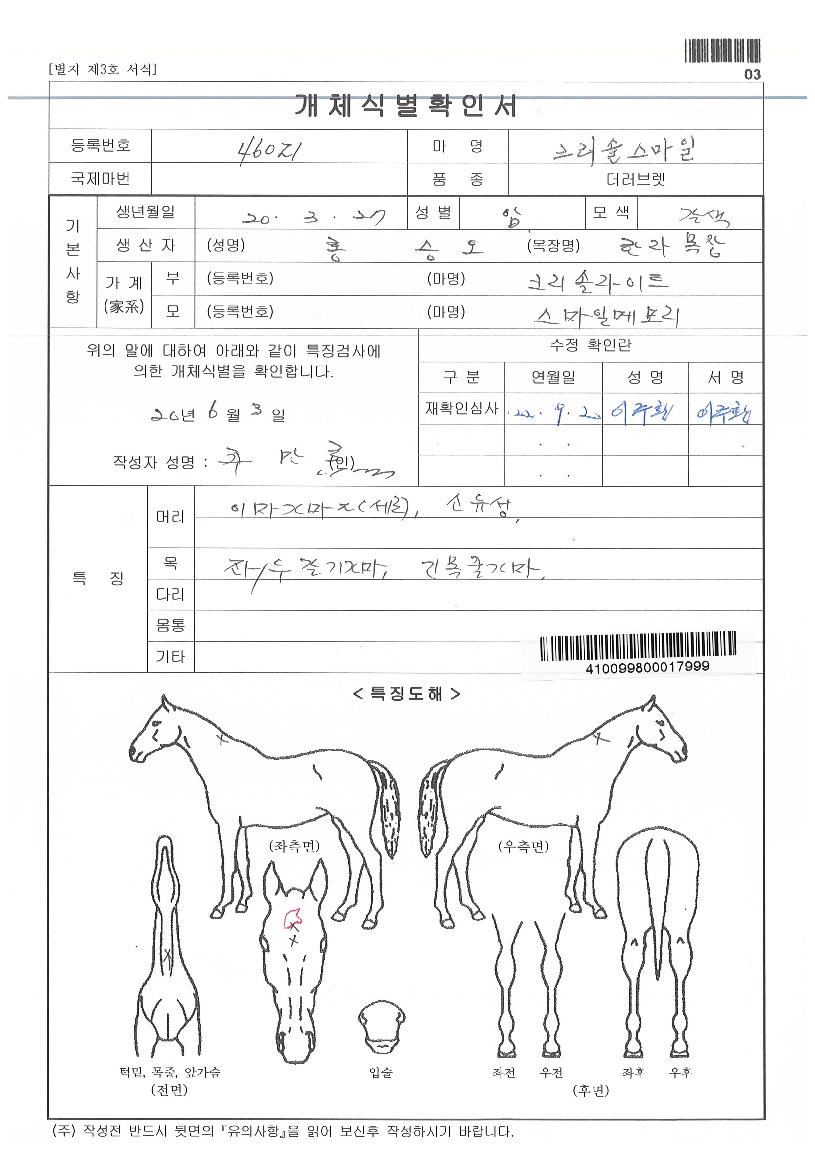 [별지 제3호 서식]
03
개체식별확인서
등록번호 46021 마 명 크리솔스마일
국제마번 품 종 더러브렛
기본사항
생년월일 20. 3. 27 성별 암 모색 갈색
생산자 (성명) 홍승오 (목장명) 한라목장
가계(家系) 부 (등록번호) (마명) 크리솔라이트
모 (등록번호) (마명) 스마일메모리
위의 말에 대하여 아래와 같이 특징검사에
의한 개체식별을 확인합니다.
20년 6월 3일
작성자 성명 : (인)
수정 확인란
구분 연월일 성명 서명
재확인심사 22. 9. 2
. .
. .
특 징
머리 이마가마(세로), 선유성,
목 좌/우 줄기가마, 긴목줄가마,
다리
몸통
기타
410099800017999
< 특징도해 >
(좌측면) (우측면)
턱밑, 목줄, 앞가슴
(전면)
입술
좌전 우전 좌후 우후
(후면)
(주) 작성전 반드시 뒷면의 『유의사항』을 읽어 보신후 작성하시기 바랍니다.